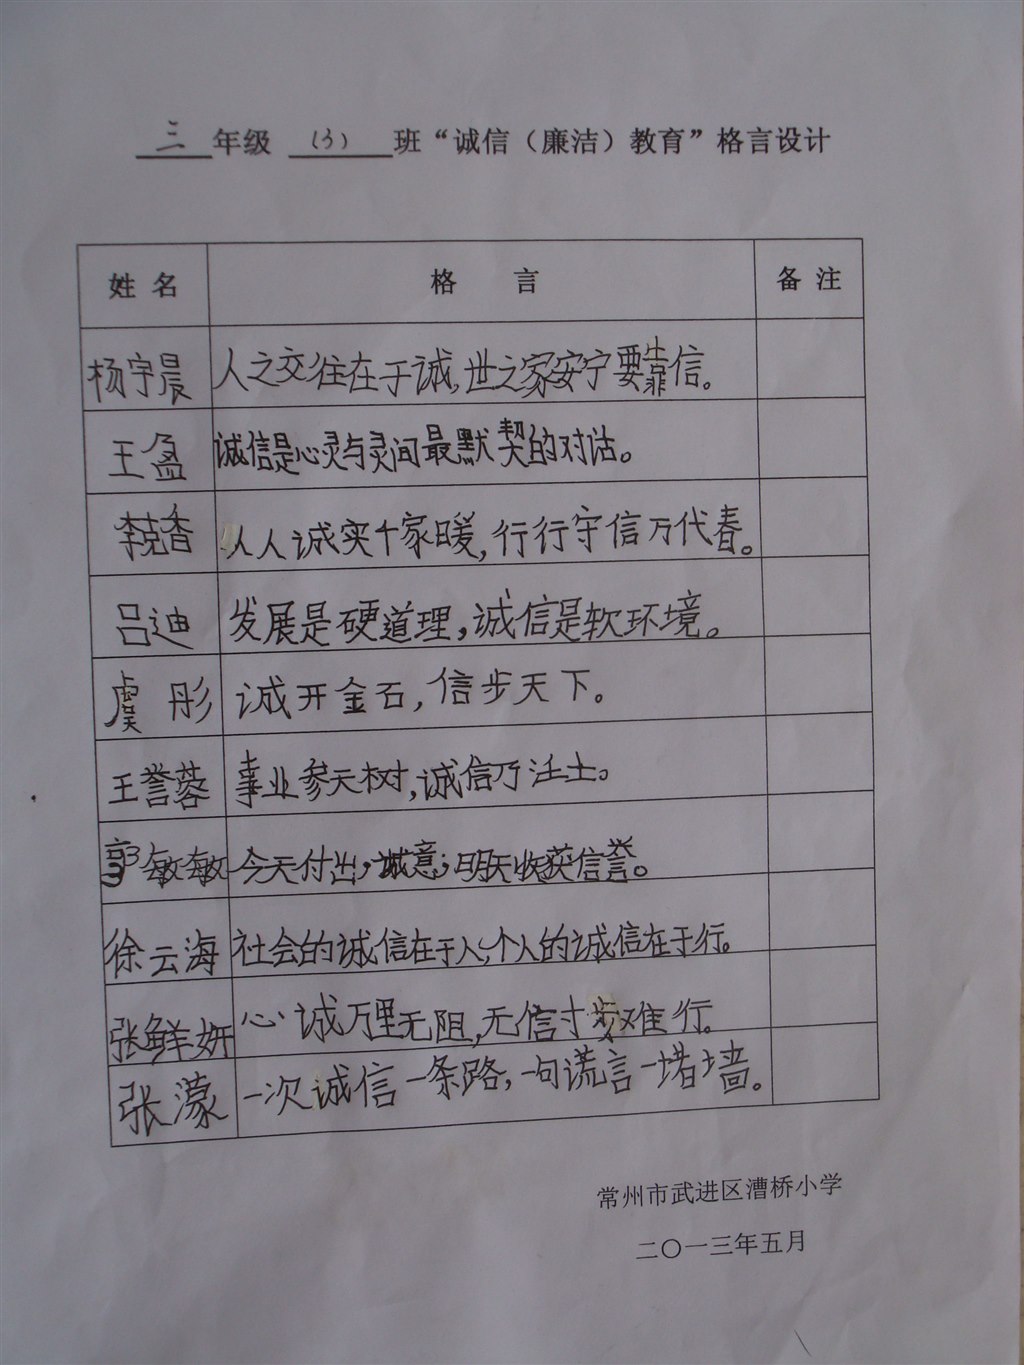 三 年级 (3) 班“诚信（廉洁）教育”格言设计
姓 名 格 言 备 注
杨宇晨 人之交往在于诚,世之家安宁要靠信。
王盈 诚信是心灵与灵间最默契的对话。
李克香 人人诚实千家暖,行行守信万代春。
吕迪 发展是硬道理,诚信是软环境。
虞 彤 诚开金石,信步天下。
王誉蓉 事业参天树,诚信乃沃土。
郭敏敏 今天付出诚意;明天收获信誉。
徐云海 社会的诚信在于人;个人的诚信在于行。
张鲜妍 心诚万里无阻,无信寸步难行。
张濛 一次诚信一条路,一句谎言一堵墙。
常州市武进区漕桥小学
二〇一三年五月